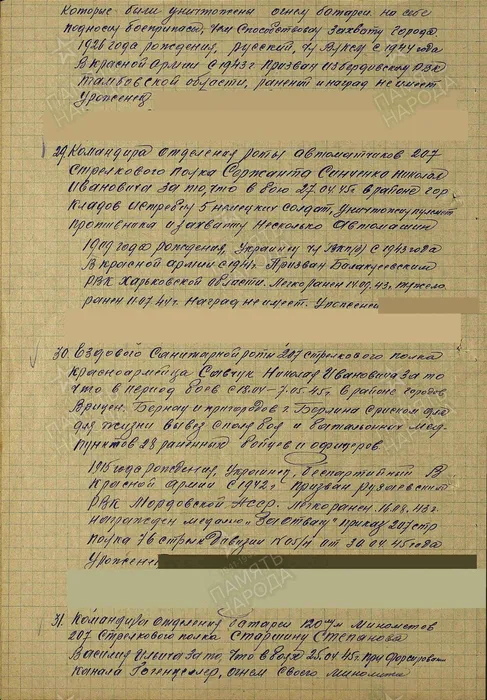 которые были уничтожены огнем батареи. на себе
подносил боеприпасы, чем способствовал захвату города.
1926 года рождения, русский, чл ВЛКСМ с 1944 года
В Красной Армии с 1943 г. Призван РВК
Тамбовской области, ранений и наград не имеет.
Уроженец
29. Командира отделения роты автоматчиков 207
стрелкового полка Сержанта Санченко Николая
Ивановича за то, что в бою 27.04.45г в районе гор
Кладов истребил 5 немецких солдат, уничтожил пулемет
противника и захватил несколько автомашин
1919 года рождения, Украинец, чл ВКП(б) с 1943 года
В Красной Армии с 1941г. Призван Балаклеевским
РВК Харьковской области. Легко ранен 14.09.43г, тяжело
ранен 11.07.44г. Наград не имеет. Уроженец
30. Ездового Санитарной роты 207 стрелкового полка
Красноармейца Савчук Николая Ивановича за то
что в период боев с 18.04-7.05.45г. в районе городов
Врицен, Бернау и пригородов г. Берлина с риском
для жизни вывез с поля боя и батальонных мед.
пунктов 28 раненных бойцев и офицеров.
1915 года рождения, Украинец, беспартийный В
Красной Армии с 1942г. Призван Рузаевским
РВК Мордовской АССР. Легко ранен 16.08.43г.
награжден медалью "За отвагу" приказ 207 стр
полка 76 стрелк Дивизии №05/н от 30.04.45 года
Уроженец
31. Командира отделения батареи 120 м/м Минометов
207 Стрелкового полка Старшину Степанова
Василия Ильича за то, что в боях 25.04.45г. при форсировании
канала огнем своего миномета
ПАМЯТЬ
НАРОДА